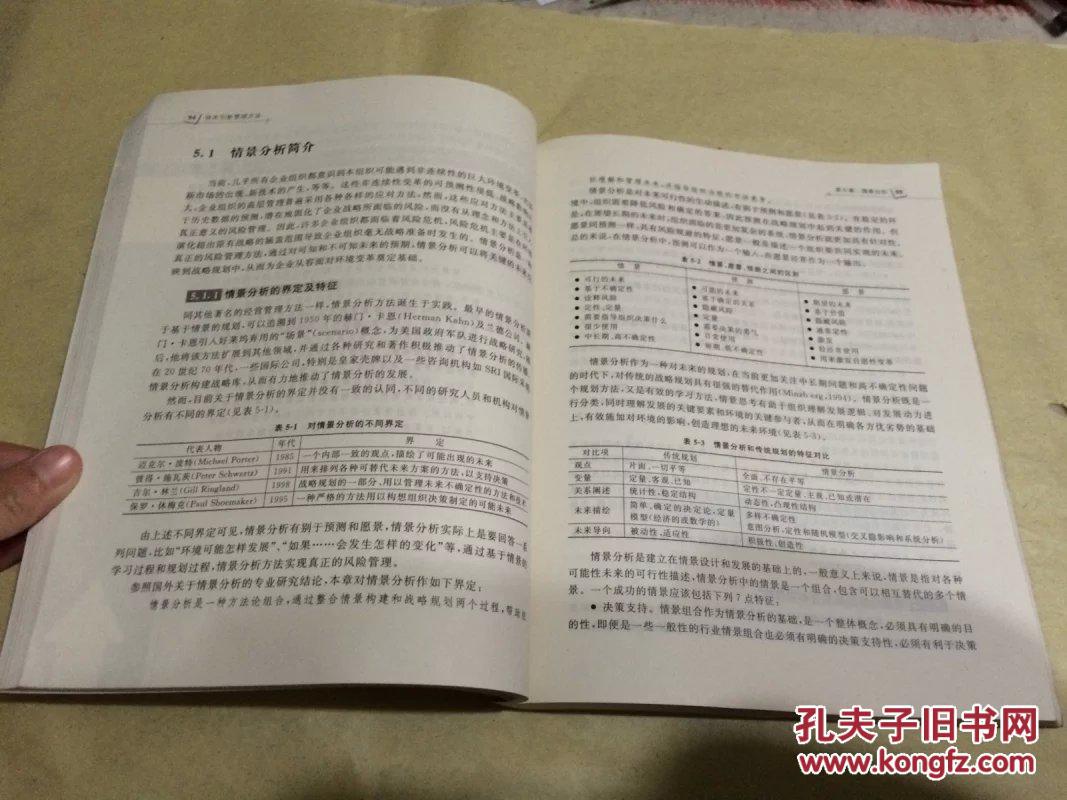 94 技术创新管理方法
5.1 情景分析简介
当前,几乎所有企业组织都意识到本组织可能遇到非连续性的巨大环境变革,
新市场的出现、新技术的产生,等等。这些非连续性变革的可预测性很低,
大。企业组织的高层管理普遍采用各种各样的应对方法。然而,这些应对方法主要是基
于历史数据的预测,潜在地固化了企业战略所面临的风险,而没有从理念和方法上
真正意义的风险管理。因此,许多企业组织都面临着风险危机,风险危机主要是在环境
演化超出原有战略的涵盖范围导致企业组织毫无战略准备时发生的。情景分析是一种
真正的风险管理方法,通过对可知和不可知未来的预期,情景分析可以将关键的未来
映到战略规划中,从而为企业从容面对环境变革奠定基础。
5.1.1 情景分析的界定及特征
同其他著名的经营管理方法一样,情景分析方法诞生于实践。最早的情景分析源
于基于情景的规划,可以追溯到1950年的赫门·卡恩(Herman Kahn)及兰德公司。赫
门·卡恩引入好来坞专用的“场景”(scenario)概念,为美国政府军队进行战略研究,而
后,他将该方法扩展到其他领域,并通过各种研究和著作积极推动了情景分析的传播。
在20世纪70年代,一些国际公司,特别是皇家壳牌以及一些咨询机构如SRI国际采用
情景分析构建战略库,从而有力地推动了情景分析的发展。
然而,目前关于情景分析的界定并没有一致的认同,不同的研究人员和机构对情景
分析有不同的界定(见表5-1)。
表5-1 对情景分析的不同界定
代表人物 年代 界 定
迈克尔·波特(Michael Porter) 1985 一个内部一致的观点,描绘了可能出现的未来
彼得·施瓦茨(Peter Schwartz) 1991 用来排列各种可替代未来方案的方法,以支持决策
吉尔·林兰(Gill Ringland) 1998 战略规划的一部分,用以管理未来不确定性的方法和技术
保罗·休梅克(Paul Shoemaker) 1995 一种严格的方法用以构想组织决策制定的可能未来
由上述不同界定可见,情景分析有别于预测和愿景,情景分析实际上是要回答一系
列问题,比如“环境可能怎样发展”、“如果……会发生怎样的变化”等,通过基于情景的
学习过程和规划过程,情景分析方法实现真正的风险管理。
参照国外关于情景分析的专业研究结论,本章对情景分析作如下界定:
情景分析是一种方法论组合,通过整合情景构建和战略规划两个过程,帮助组
第5章 情景分析 95
情景分析是对未来可行性的生动描述,有别于预测和愿景(见表5-2)。
总的来说,在情景分析中,预测可以作为一个输入,而愿景经常作为一个输出。
表5-2 情景、愿景、预测之间的区别
情 景 预 测 愿 景
可行的未来 可能的未来 期望的未来
基于不确定性 基于确定的关系 基于价值
诠释风险 隐藏风险 隐藏风险
定性、定量 定量 通常定性
需要指导组织决策什么 需要决策的勇气 激发
很少使用 日常使用 较经常使用
中长期、高不确定性 短期、低不确定性 用来激发自愿性变革
情景分析作为一种对未来的规划,在当前更加关注中长期问题和高不确定性问题
的时代下,对传统的战略规划具有很强的替代作用(Minzberg,1994)。情景分析既是一
个规划方法,又是有效的学习方法,情景思考有助于组织理解发展逻辑、对发展动力进
行分类,同时理解发展的关键要素和环境的关键参与者,从而在明确各方优劣势的基础
上,有效施加对环境的影响,创造理想的未来环境(见表5-3)。
表5-3 情景分析和传统规划的特征对比
对比项 传统规划 情景分析
观点 片面,一切平等 全面,不存在平等
变量 定量、客观、已知 定性不一定定量、主观、已知或潜在
关系阐述 统计性,稳定结构 动态性,凸现性结构
未来描绘 简单、确定的决定论,定量模型(经济的或数学的) 多样不确定性 意图分析、定性和随机模型(交叉影响和系统分析)
未来导向 被动性,适应性 积极性,创造性
情景分析是建立在情景设计和发展的基础上的,一般意义上来说,情景是指对各种
可能性未来的可行性描述,情景分析中的情景是一个组合,包含可以相互替代的多个情
景。一个成功的情景应该包括下列7点特征:
● 决策支持。情景组合作为情景分析的基础,是一个整体概念,必须具有明确的目
的性,即便是一些一般性的行业情景组合也必须有明确的决策支持性,必须有利于决策
孔夫子旧书网
www.kongfz.com